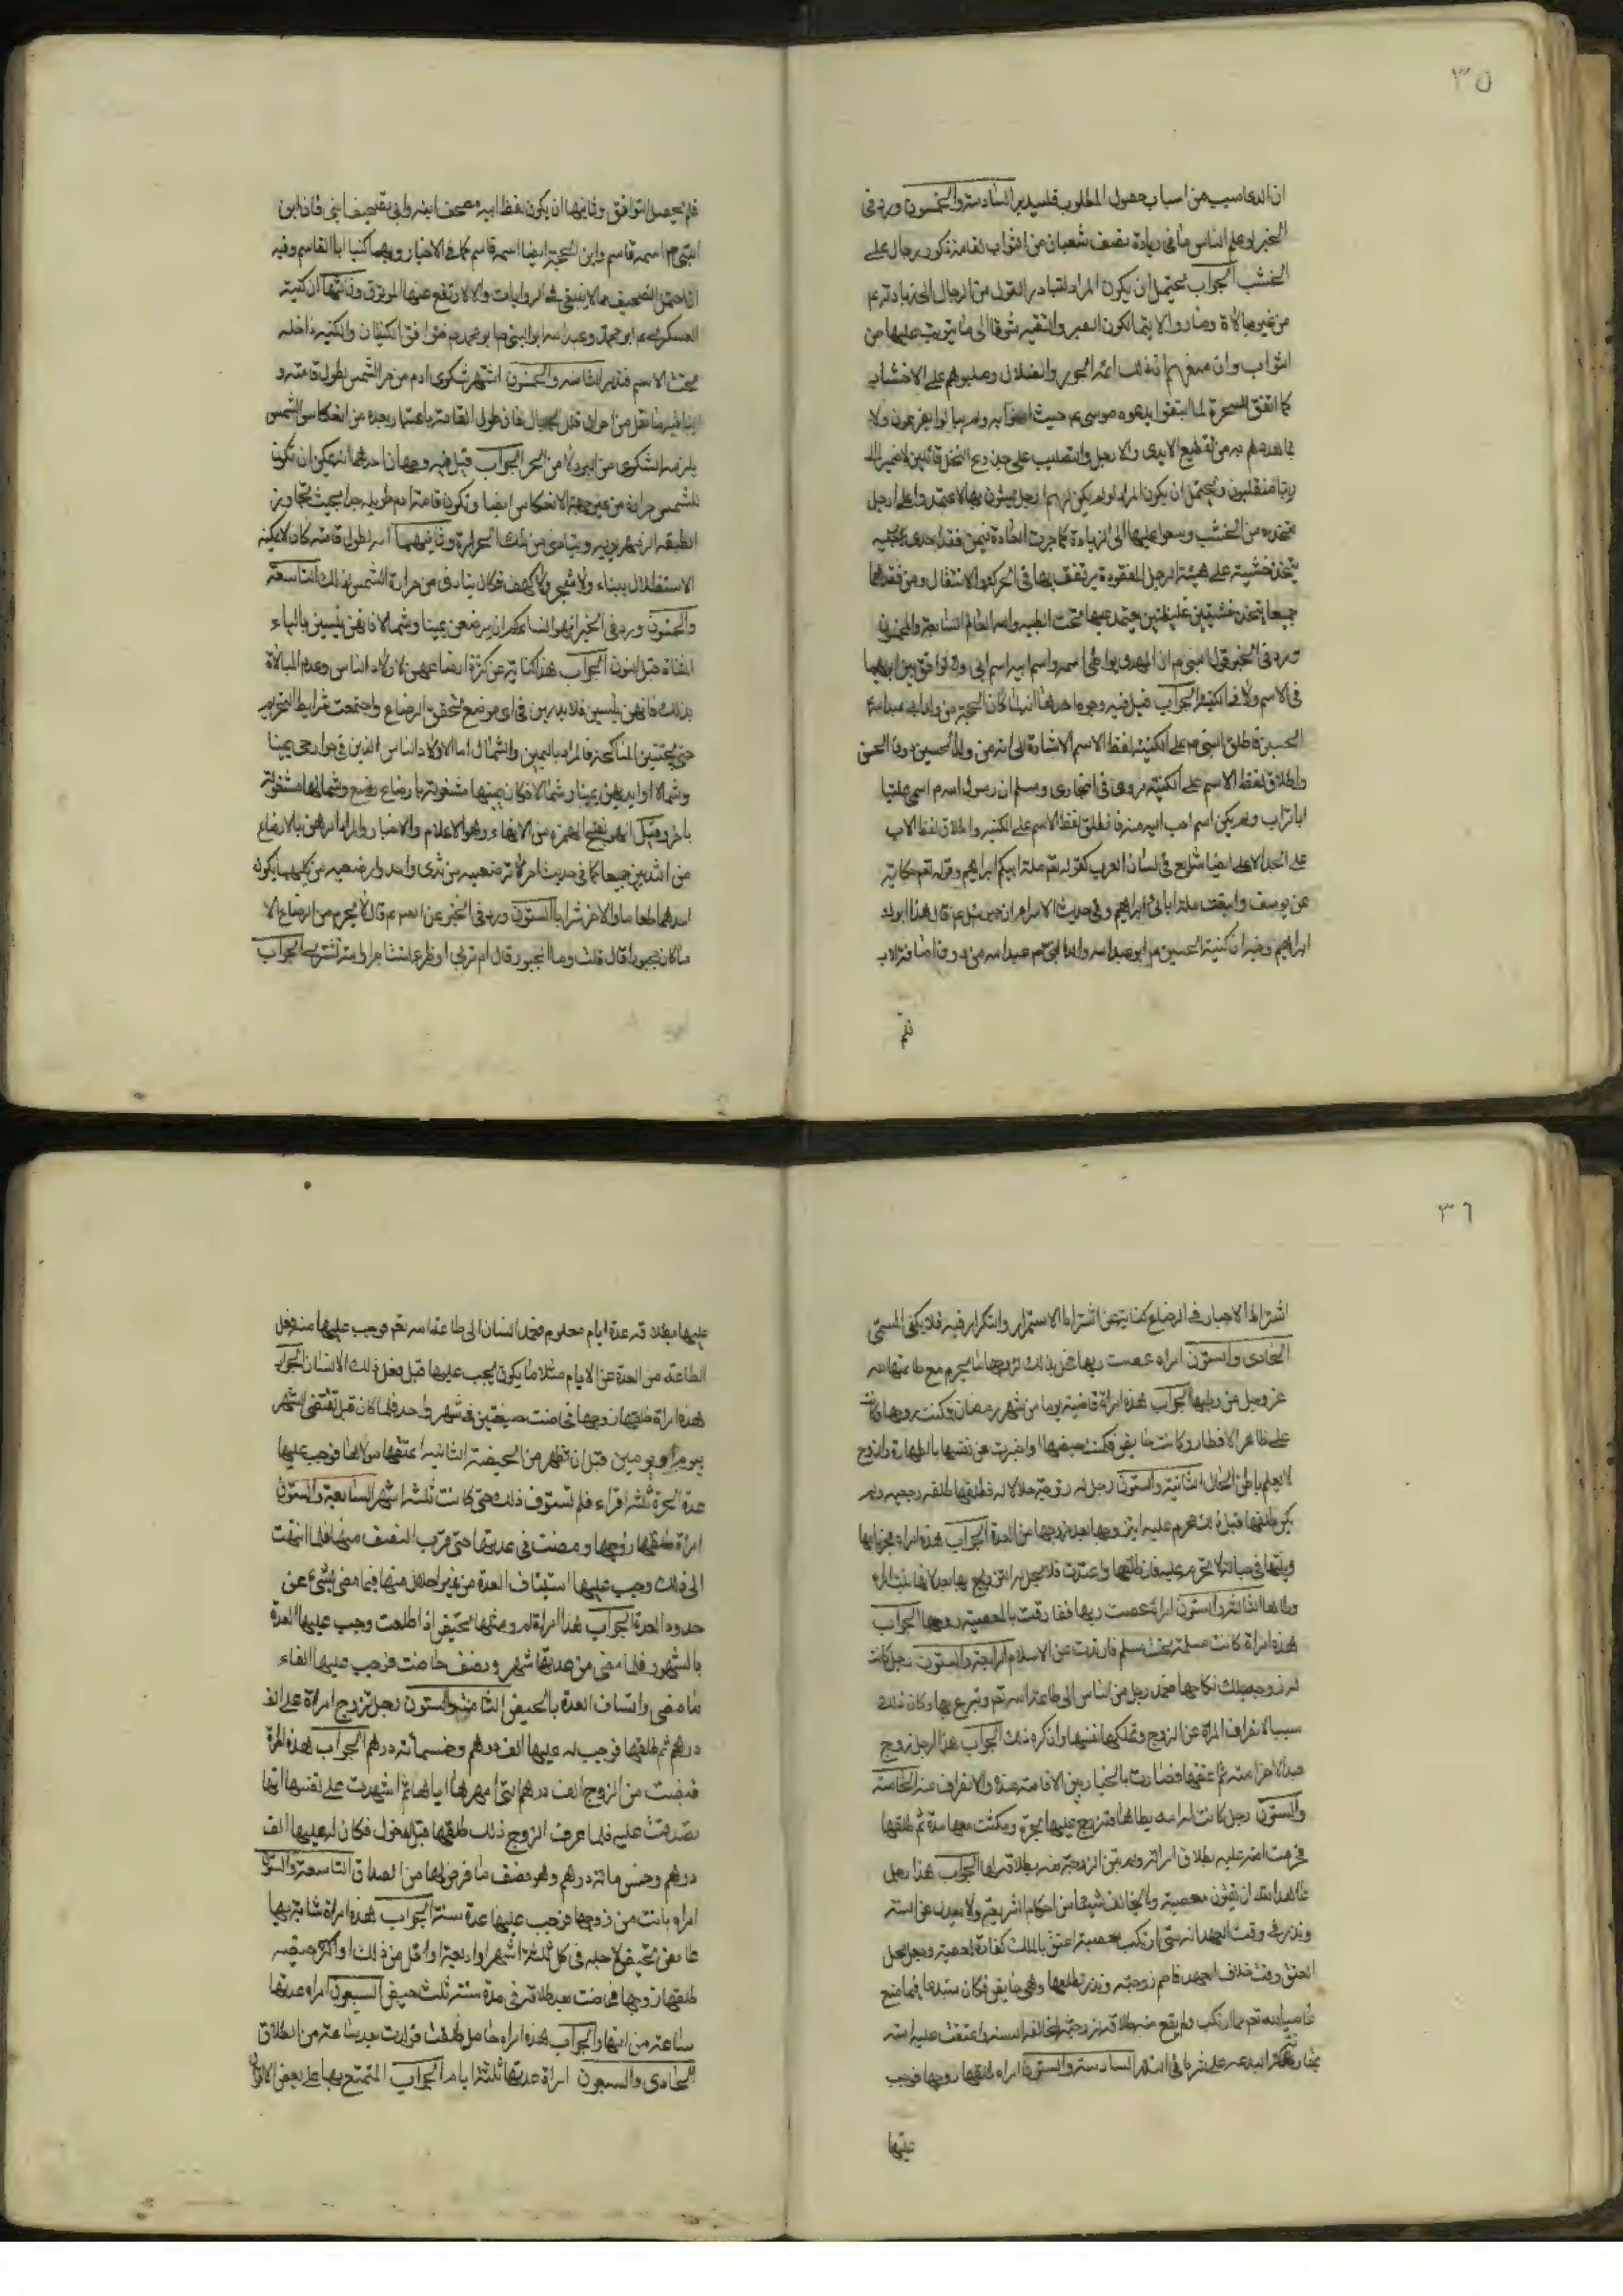 ٣٥
ان الدعا سبب من اسباب حصول المطلوب فليتدبر السادسة والخمسون ورد في
الخبر لو علم الناس ما في زيادة نصف شعبان من الثواب لقامت ذكور رجال على
الخشب الجواب يحتمل ان يكون المراد المتبادر القول من الرجال الى زيادته ع
من غير مبالاة وصاروا لا يتمالكون الصبر والتقية شوقا الى ما يترتب عليها من
الثواب وان منعهم ائمة الجور والضلال وصلبوهم على الاخشاب
كما اتفق السحرة لما اتبعوا بدعوة موسى ع حيث امنوا به ولم يبالوا بفرعون ولا
بما هددهم به من تقطيع الايدى والارجل والتصليب على جذوع النخل قائلين لا ضير انا الى
ربنا منقلبون ويحتمل ان يكون المراد لو لم يكن لهم ارجل يمشون بها لاعتمدوا على ارجل
متخذه من الخشب وسعوا عليها الى الزيادة كما جرت العادة فيمن فقد احدى رجليه
يتخذ خشبة على هيئة الرجل المفقودة يرتفق بها في الحركة والانتقال ومن فقدهما
جميعا يتخذ خشبتين غليظتين يعتمد عليهما تحت ابطيه والله العالم السابعة والخمسون
ورد في الخبر قول النبي ص ان المهدى يواطى اسمه واسم ابيه اسم ابى ولا توافق بين ابويهما
في الاسم ولا في الكنية الجواب قيل فيه وجوه احدها انه لما كان الحجة من ولد ابى عبدالله
الحسين فاطلق النبي ص على الكنية لفظ الاسم الاشارة الى انه من ولد الحسين دون الحسن
واطلاق لفظ الاسم على الكنية مروى في البخارى ومسلم ان رسول الله ص اسمى عليا
ابا تراب ولم يكن اسم احب اليه منه فاطلق لفظ الاسم على الكنية واطلاق لفظ الاب
على الجد الاعلى ايضا شايع في لسان العرب كقوله تعم ملة ابيكم ابراهيم وقوله تعم حكاية
عن يوسف واتبعت ملة ابائى ابراهيم وفي حديث الاسراء ان جبرئيل ع قال هذا ابوك
ابراهيم وفيه ان كنية الحسين ع ابو عبدالله والد النبي ص عبدالله من دون اضافة لاب
فلم
فلم يحصل التوافق وثانيها ان يكون لفظ ابيه مصحف ابنه وابى تصحيف ابنى فان ابن
النبي ص اسمه قاسم وابن الحجة ايضا اسمه قاسم كما في الاخبار وبهما كنيا ابا القاسم وفيه
ان احتمال التصحيف مما لا ينبغي في الروايات والا لارتفع عنها الوثوق وثالثها ان كنيته
العسكرى ع ابو محمد وعبدالله ابو النبي ص ابو محمد فتوافق الكنيتان والكنية داخلة
تحت الاسم فتدبر الثامنة والخمسون اشتهر شكوى ادم من حر الشمس بطول قامته و
يلزمه الشكوى من البرد لا من الحر الجواب قيل فيه وجهان احدهما انه يمكن ان تكون
للشمس حرارة من غير جهة الانعكاس ايضا وتكون قامة ادم طويلة جدا بحيث تجاوز
الطبقة الزمهريرية ويتأذى من تلك الحرارة وثانيهما انه لطول قامته كان لا يمكنه
الاستظلال ببناء ولا شجر ولا كهف فكان يتأذى من حرارة الشمس لذلك التاسعة
والخمسون ورد في الخبر انهوا نساءكم ان يرضعن يمينا وشمالا فانهن ينسين بالياء
المثناة قبل النون الجواب هذا كناية عن كثرة ارضاعهن لاولاد الناس وعدم المبالاة
بذلك فانهن ينسين فلا يدرين في اى موضع تحقق الرضاع واجتمعت شرايط التحريم
حتى يجتنبن المناكحة فالمراد باليمين والشمال اما الاولاد الناس الذين في جوارهن يمينا
وشمالا او ايديهن يمينا وشمالا فكان يمينها مشغولة بارضاع رضيع وشمالها مشغولة
باخر وقيل انهو بفتح الهمزة من الانهاء وهو الاعلام والاخبار والمراد امرهن بالارضاع
من الثديين جميعا كما في حديث امرأة ترضعيه من ثدى واحد وارضعيه من كليهما يكون
احدهما طعاما والاخر شرابا الستون ورد في الخبر عن ع قال لا يحرم من الرضاع الا
ما كان مجبورا قال قلت وما المجبور قال ام تربى او ظئر تستأجر او امة تشترى الجواب
٣٦
اشتراط الاجبار في الرضاع كناية عن اشتراط الاستمرار والتكرار فيه فلا يكفى المسمى
الحادى والستون امراة عصت ربها فحل بذلك لزوجها ما يحرم مع طاعتها لله
عز وجل من وطيها الجواب هذه امرأة قاضية يوما من شهر رمضان وكنت زوجها وكانت
على ظاهر الافطار وكانت حايض فكتمت حيضها واخبرت عن نفسها بالطهارة والزوج
لا يعلم باطن الحال الثانية والستون رجل له زوجة حلالا له فطلقها طلقة رجعية ولم
يكن طلقها قبل ذلك فحرم عليه ان يتزوجها بعد خروجها من العدة الجواب هذه امراة
والستون امرأة عصت ربها ففارقت بالمعصية زوجها الجواب
هذه امرأة كانت مسلمة تحت مسلم فارتدت عن الاسلام الرابعة والستون رجل كانت
له زوجة يملك نكاحها فعمد رجل من الناس الى طاعة الله تعم وتبرع بها وكان ذلك
سببا لانفراق المراة عن الزوج وتملكها نفسها وان كره ذلك الجواب هذا الرجل زوج
عبدالاخر امته ثم عتقها فصارت بالخيار بين الاقامة عنده والانفراق عنه الخامسة
والستون رجل كانت له امة يطاها فتزوج عليها بحرة ومكثت معها مدة ثم طلقها
فحرمت امته عليه بطلاق امراته ولم تبن الزوجة منه بطلاقه لها الجواب هذا رجل
عاهد الله ان يقول معصيته ولا يخالف شيئا من احكام الشريعة ولا يعدل عن السنة
ونذر في وقت العهد انه متى ارتكب معصية اعتق بالملك كفارة لمعصيته
عاصيا لله تعم بما ارتكب ولم يقع منه طلاقه لزوجته لمخالفة السنة واعتقت عليه امته
السادسة والستون امراة طلقها زوجها فوجب
عليها
عليها بطلاقه عدة ايام معلوم فعمد انسان الى طاعة الله تعم فوجب عليها منه فعل
الطاعة من العدة عن الايام مثلا ما يكون يجب عليها قبل فعل ذلك الانسان الجواب
هذه امراة طلقها زوجها فحاضت حيضتين في شهر واحد فلما كان قبل تقتضى الشهر
بيوم او يومين قبل ان تطهر من الحيضة الثانية اعتقها مولاها فوجب عليها
عدة الحرة ثلثة اقراء فلم تستوف ذلك حتى كانت ثلثة اشهر السابعة والستون
امراة طلقها زوجها ومضت في عدتها حتى قرب النصف منها فلما انتهت
الى ذلك وجب عليها استيناف العدة من غير اخلال منها فيما مضى بشئ عن
حدود العدة الجواب هذا امراة لم تحض ومثلها تحيض اذا طلقت وجب عليها العدة
بالشهور فلما مضى من عدتها شهر ونصف حاضت فوجب عليها القاء
ما مضى واستيناف العدة بالحيض الثامنة والستون رجل تزوج امراة على الف
درهم ثم طلقها فوجب له عليها الف درهم وخمسمائة درهم الجواب هذه المراة
قبضت من الزوج الف درهم التى امهرها اياها ثم اشهدت على نفسها انها
تصدقت عليه فلما عرف الزوج ذلك طلقها قبل الدخول فكان له عليها الف
درهم وخمس مائة درهم وهو نصف ما فرض لها من الصداق التاسعة والستون
امراة بانت من زوجها فوجب عليها عدة سنة الجواب هذه امراة شابة بها
عارض تحيض لاجله في كل ثلثة اشهر او اربعة او اقل من ذلك او اكثر حيضة
طلقها زوجها فحاضت بعد طلاقه في مدة سنة ثلث حيض السبعون امراة عدتها
ساعة من النهار الجواب هذه امراة حامل طلقت فولدت بعد ساعة من الطلاق
الحادى والسبعون امراة عدتها ثلثة ايام الجواب المتمتع بها على بعض الاقوال